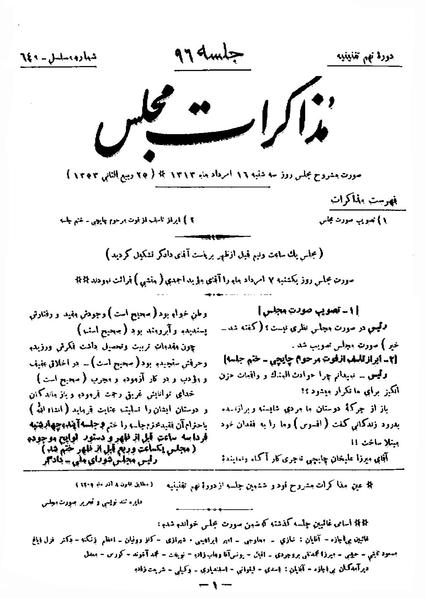 دورهٔ نهم تقنینیه
جلسه ۹۶
شماره مسلسل - ۶۴۰
مذاکرات مجلس
صورت مشروح مجلس روز سه شنبه ۱۶ امرداد ماه ۱۳۱۳ * (۲۵ ربیع الثانی ۱۳۵۳)
فهرست مذاکرات
۱) تصویب صورت مجلس
۲) ابراز تاسف از فوت مرحوم چایچی - ختم جلسه
(مجلس یک ساعت و نیم قبل از ظهر بریاست آقای دادگر تشکیل گردید)
صورت مجلس روز یکشنبه ۷ امرداد ماه را آقای مؤید احمدی (منشی) قرائت نمودند *
[۱ - تصویب صورت مجلس]
رئیس - در صورت مجلس نظری نیست؟ (گفته شد -
خیر) صورت مجلس تصویب شد.
[۲ - ابراز تاسف از فوت مرحوم چایچی - ختم جلسه]
رئیس - نمیدانم چرا حوادث المناک و واقعات حزن
انگیز برای ما تکرار میشود؟!
باز از حرکهٔ دوستان ما مردی شایسته و برازنده
بدرود زندگانی گفت (افسوس) و ما را به فقدان خود
مبتلا ساخت !!
آقای میرزا علیخان چایچی تاجری کار آگاه و نمایندهٔ
وطن خواه بود (صحیح است) وجودش مفید و رفتارش
پسندیده و آبرومند بود (صحیح است)
چون مقدمات تربیت و تحصیل داشت فکرش ورزیده
و حرفش سنجیده بود (صحیح است) - در اخلاق عفیف
و مؤدب و در کار آزموده و مجرب (صحیح است)
خدای توانایش غریق رحمت فرموده و بازماندگان
و دوستان ایشان را تسلیت عنایت فرماید (انشاءالله)
باحترام آن فقید محترم جلسه را ختم و جلسه آینده چهارشنبه
فردا سه ساعت قبل از ظهر و دستور لوایح موجوده
(مجلس یکساعت و ربع قبل از ظهر ختم شد)
رئیس مجلس شورای ملی - دادگر
* عین مذاکرات مشروح نود و ششمین جلسه از دوره نهم تقنینیه
(مطابق قانون ۸ آذر ماه ۱۳۰۶)
دایره تند نویسی و تحریر صورت مجلس
* اسامی غائبین جلسه گذشته که ضمن صورت مجلس خوانده شده:
غائبین بی اجازه - آقایان:
دیرآمدگان بی اجازه - آقایان: اسدی - لیقوانی - اسفندیاری - وکیلی - شریعت زاده
- ۱ -